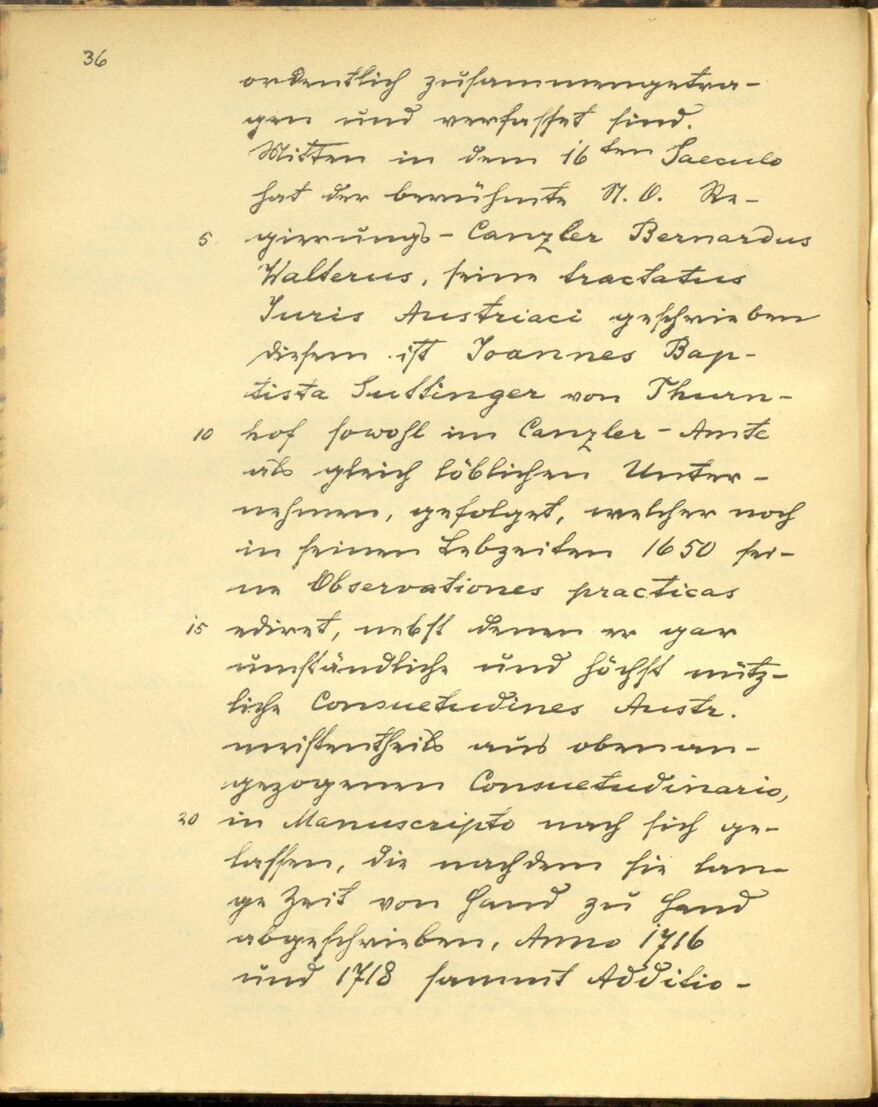 36
ordentlich zusammengetra-
gen und verfasset sind.
Mitten in dem 16ten Saeculo
hat der berühmte N. O. Re-
5 gierungs-Canzler Bernardus
Walterus, seine tractatus
Iuris Austriaci geschrieben
diesem ist Joannes Bap-
tista Suttinger von Thurn-
10 hof sowohl im Canzler-Amte
als gleich löblichen Unter-
nehmen, gefolget, welcher noch
in seinen Lebzeiten 1650 sei-
ne Observationes practicas
15 ediret, nebst denen er gar
umständliche und höchst nütz-
liche Consuetudines Austr.
meistentheils aus obenan-
gezogenen Consuetudinario,
20 in Manuscripto nach sich ge-
lassen, die nachdem sie lan-
ge Zeit von Hand zu Hand
abgeschrieben, Anno 1716
und 1718 sammt Additio-